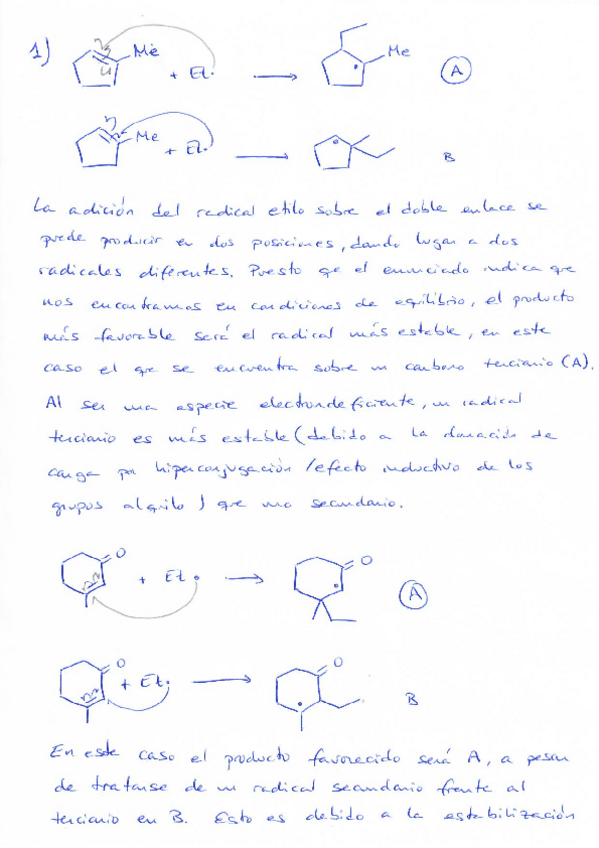 1)
Me
+ Et.
Me
A
Me
+ Et.
B
La adición del radical etilo sobre el doble enlace se
puede producir en dos posiciones, dando lugar a dos
radicales diferentes. Puesto qe el enunciado indica que
nos encontramos en condiciones de eqilibrio, el producto
más favorable será el radical más estable, en este
caso el qe se encuentra sobre un carbono terciario (A).
Al ser una especie electrondeficiente, un radical
terciario es más estable (debido a la donación de
carga por hiperconjugación / efecto inductivo de los
grupos alquilo) qe uno secundario.
O
+ Et.
O
A
O
+ Et.
O
B
En este caso el producto favorecido será A, a pesar
de tratarse de un radical secundario frente al
terciario en B. Esto es debido a la estabilización